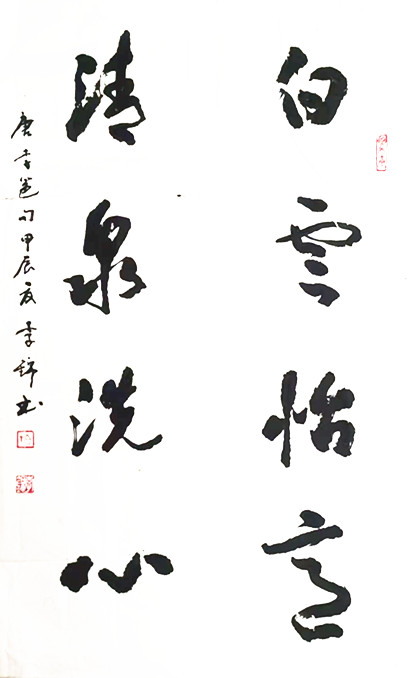 白雲怡意
清泉洗心
唐李邕句甲辰夏李书